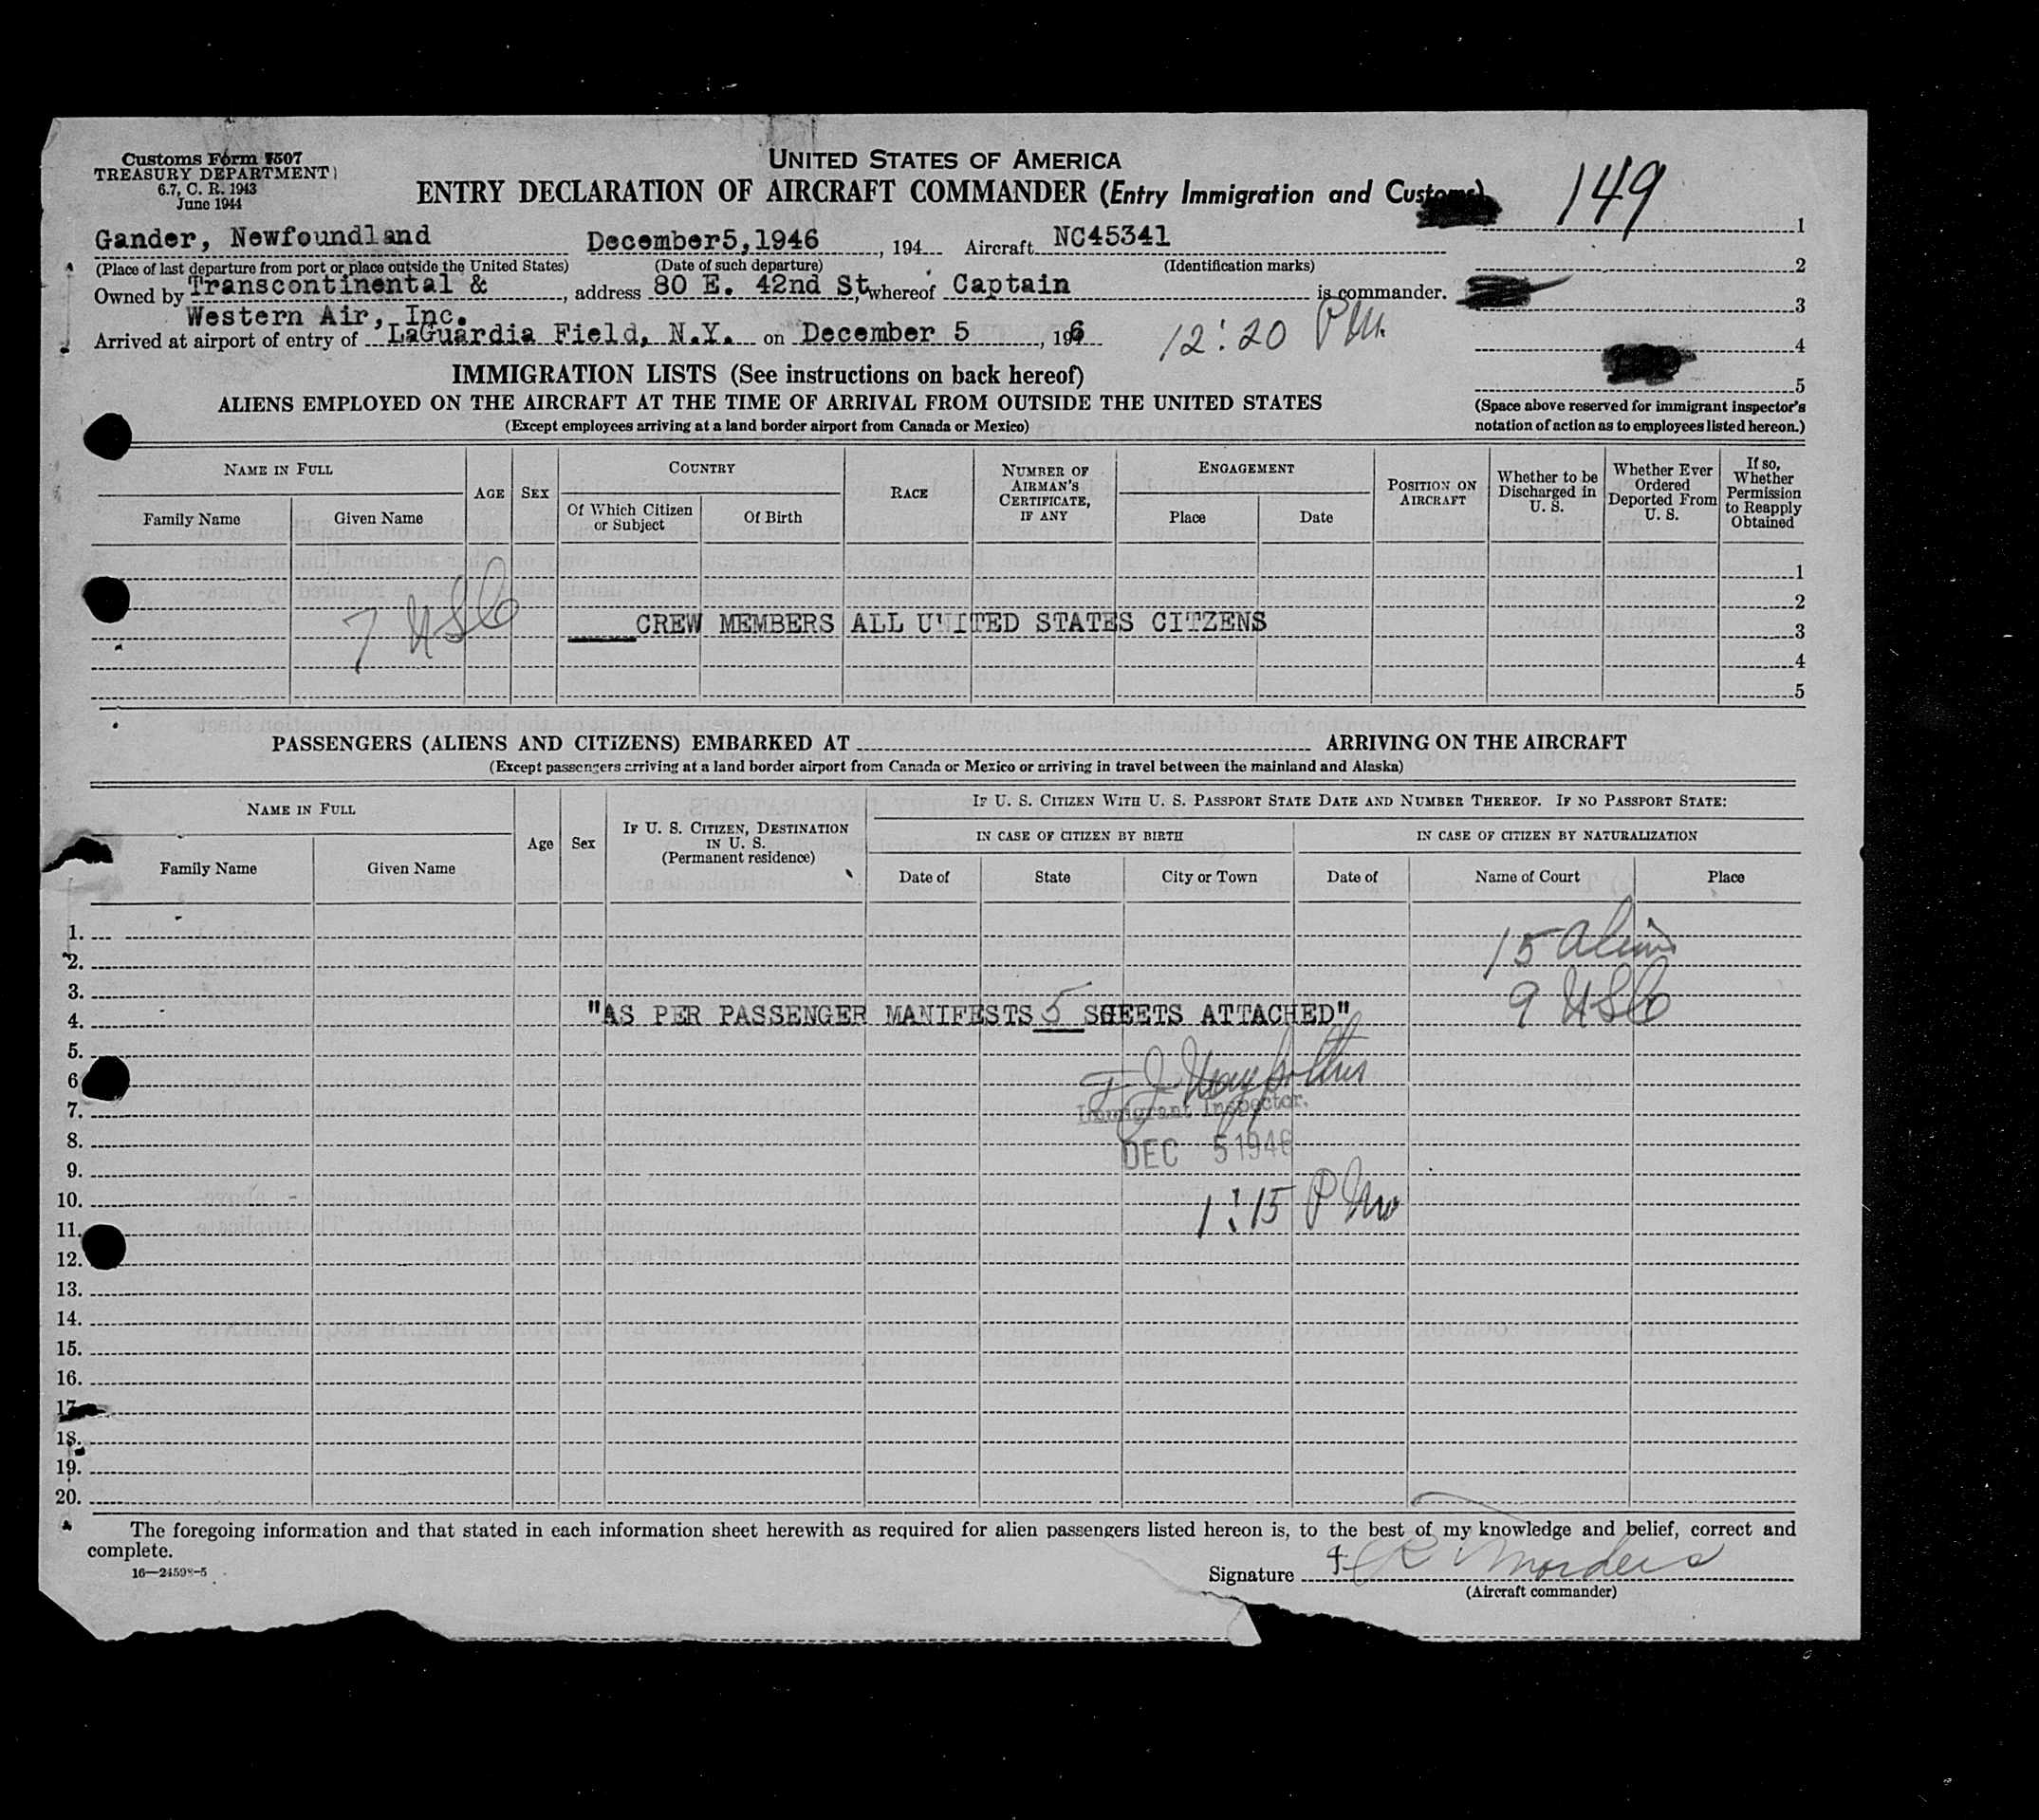 Customs Form 7507
TREASURY DEPARTMENT
6.7, C. R. 1943
June 1944
UNITED STATES OF AMERICA
ENTRY DECLARATION OF AIRCRAFT COMMANDER (Entry Immigration and Customs)
149
1
Gander, Newfoundland December5,1946, 194 Aircraft NC45341
(Place of last departure from port or place outside the United States) (Date of such departure) (Identification marks)
2
Owned by Transcontinental & , address 80 E. 42nd St, whereof Captain is commander.
3
Western Air, Inc.
Arrived at airport of entry of LaGuardia Field, N.Y. on December 5, 1946 12:20 PM.
4
IMMIGRATION LISTS (See instructions on back hereof)
5
ALIENS EMPLOYED ON THE AIRCRAFT AT THE TIME OF ARRIVAL FROM OUTSIDE THE UNITED STATES
(Except employees arriving at a land border airport from Canada or Mexico)
(Space above reserved for immigrant inspector's
notation of action as to employees listed hereon.)
NAME IN FULL
Family Name
Given Name
AGE
SEX
COUNTRY
Of Which Citizen
or Subject
Of Birth
RACE
NUMBER OF
AIRMAN'S
CERTIFICATE,
IF ANY
ENGAGEMENT
Place
Date
POSITION ON
AIRCRAFT
Whether to be
Discharged in
U. S.
Whether Ever
Ordered
Deported From
U. S.
If so,
Whether
Permission
to Reapply
Obtained
1
2
7 USC CREW MEMBERS ALL UNITED STATES CITZENS 3
4
5
PASSENGERS (ALIENS AND CITIZENS) EMBARKED AT ARRIVING ON THE AIRCRAFT
(Except passengers arriving at a land border airport from Canada or Mexico or arriving in travel between the mainland and Alaska)
NAME IN FULL
Family Name
Given Name
Age
Sex
IF U. S. CITIZEN, DESTINATION
IN U. S.
(Permanent residence)
IF U. S. CITIZEN WITH U. S. PASSPORT STATE DATE AND NUMBER THEREOF. IF NO PASSPORT STATE:
IN CASE OF CITIZEN BY BIRTH
IN CASE OF CITIZEN BY NATURALIZATION
Date of
State
City or Town
Date of
Name of Court
Place
1. 15 Aliens
2.
3. 9 USC
4. "AS PER PASSENGER MANIFESTS 5 SHEETS ATTACHED"
5.
6
7. Immigrant Inspector.
8. DEC 5 1946
9.
10. 1:15 PM
11.
12.
13.
14.
15.
16.
17.
18.
19.
20.
The foregoing information and that stated in each information sheet herewith as required for alien passengers listed hereon is, to the best of my knowledge and belief, correct and
complete.
16—24598-5
Signature
(Aircraft commander)